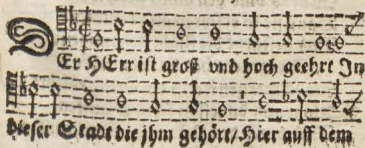 DEr HErr ist groß vnd hoch geehrt Jn
dieser Stadt die jhm gehört/ Hier auff dem